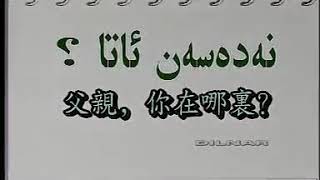 نەدەسەن ئاتا ؟
父親，你在哪裏?
DILNAR